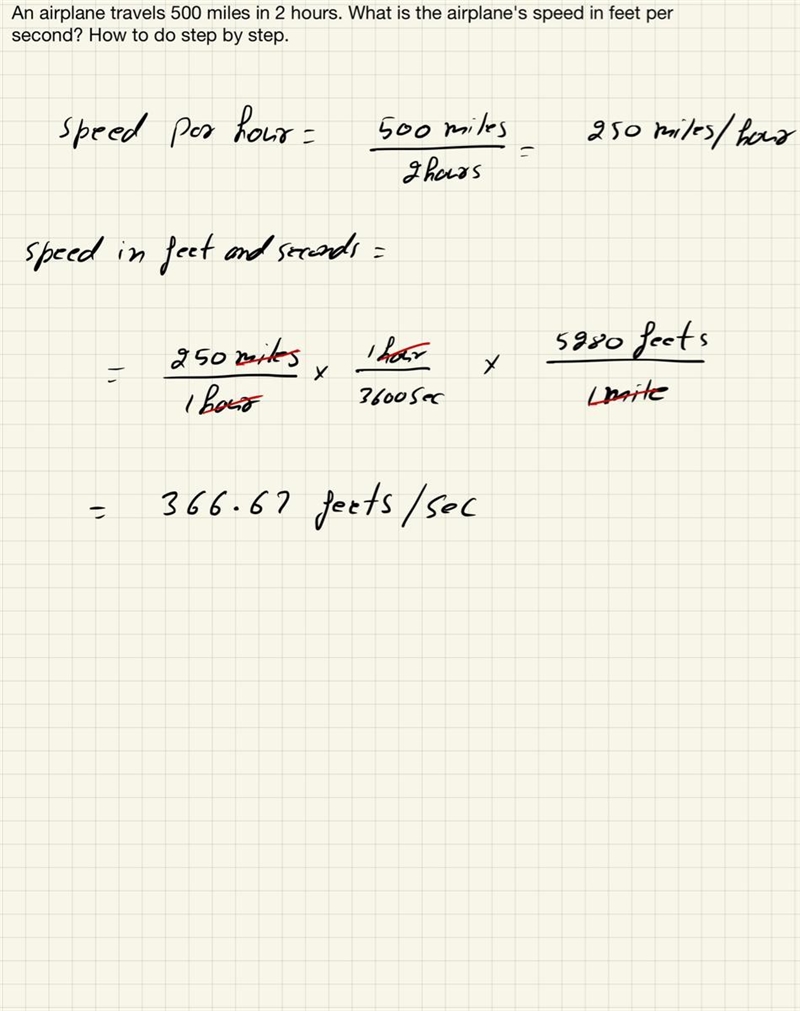 An airplane travels 500 miles in 2 hours. What is the airplane's speed in feet per
second? How to do step by step.
Speed per hour = 500 miles / 2 hours = 250 miles/hour
Speed in feet and seconds =
= 250 miles / 1 hour × 1 hour / 3600 Sec × 5280 feets / 1 mile
= 366.67 feets/sec